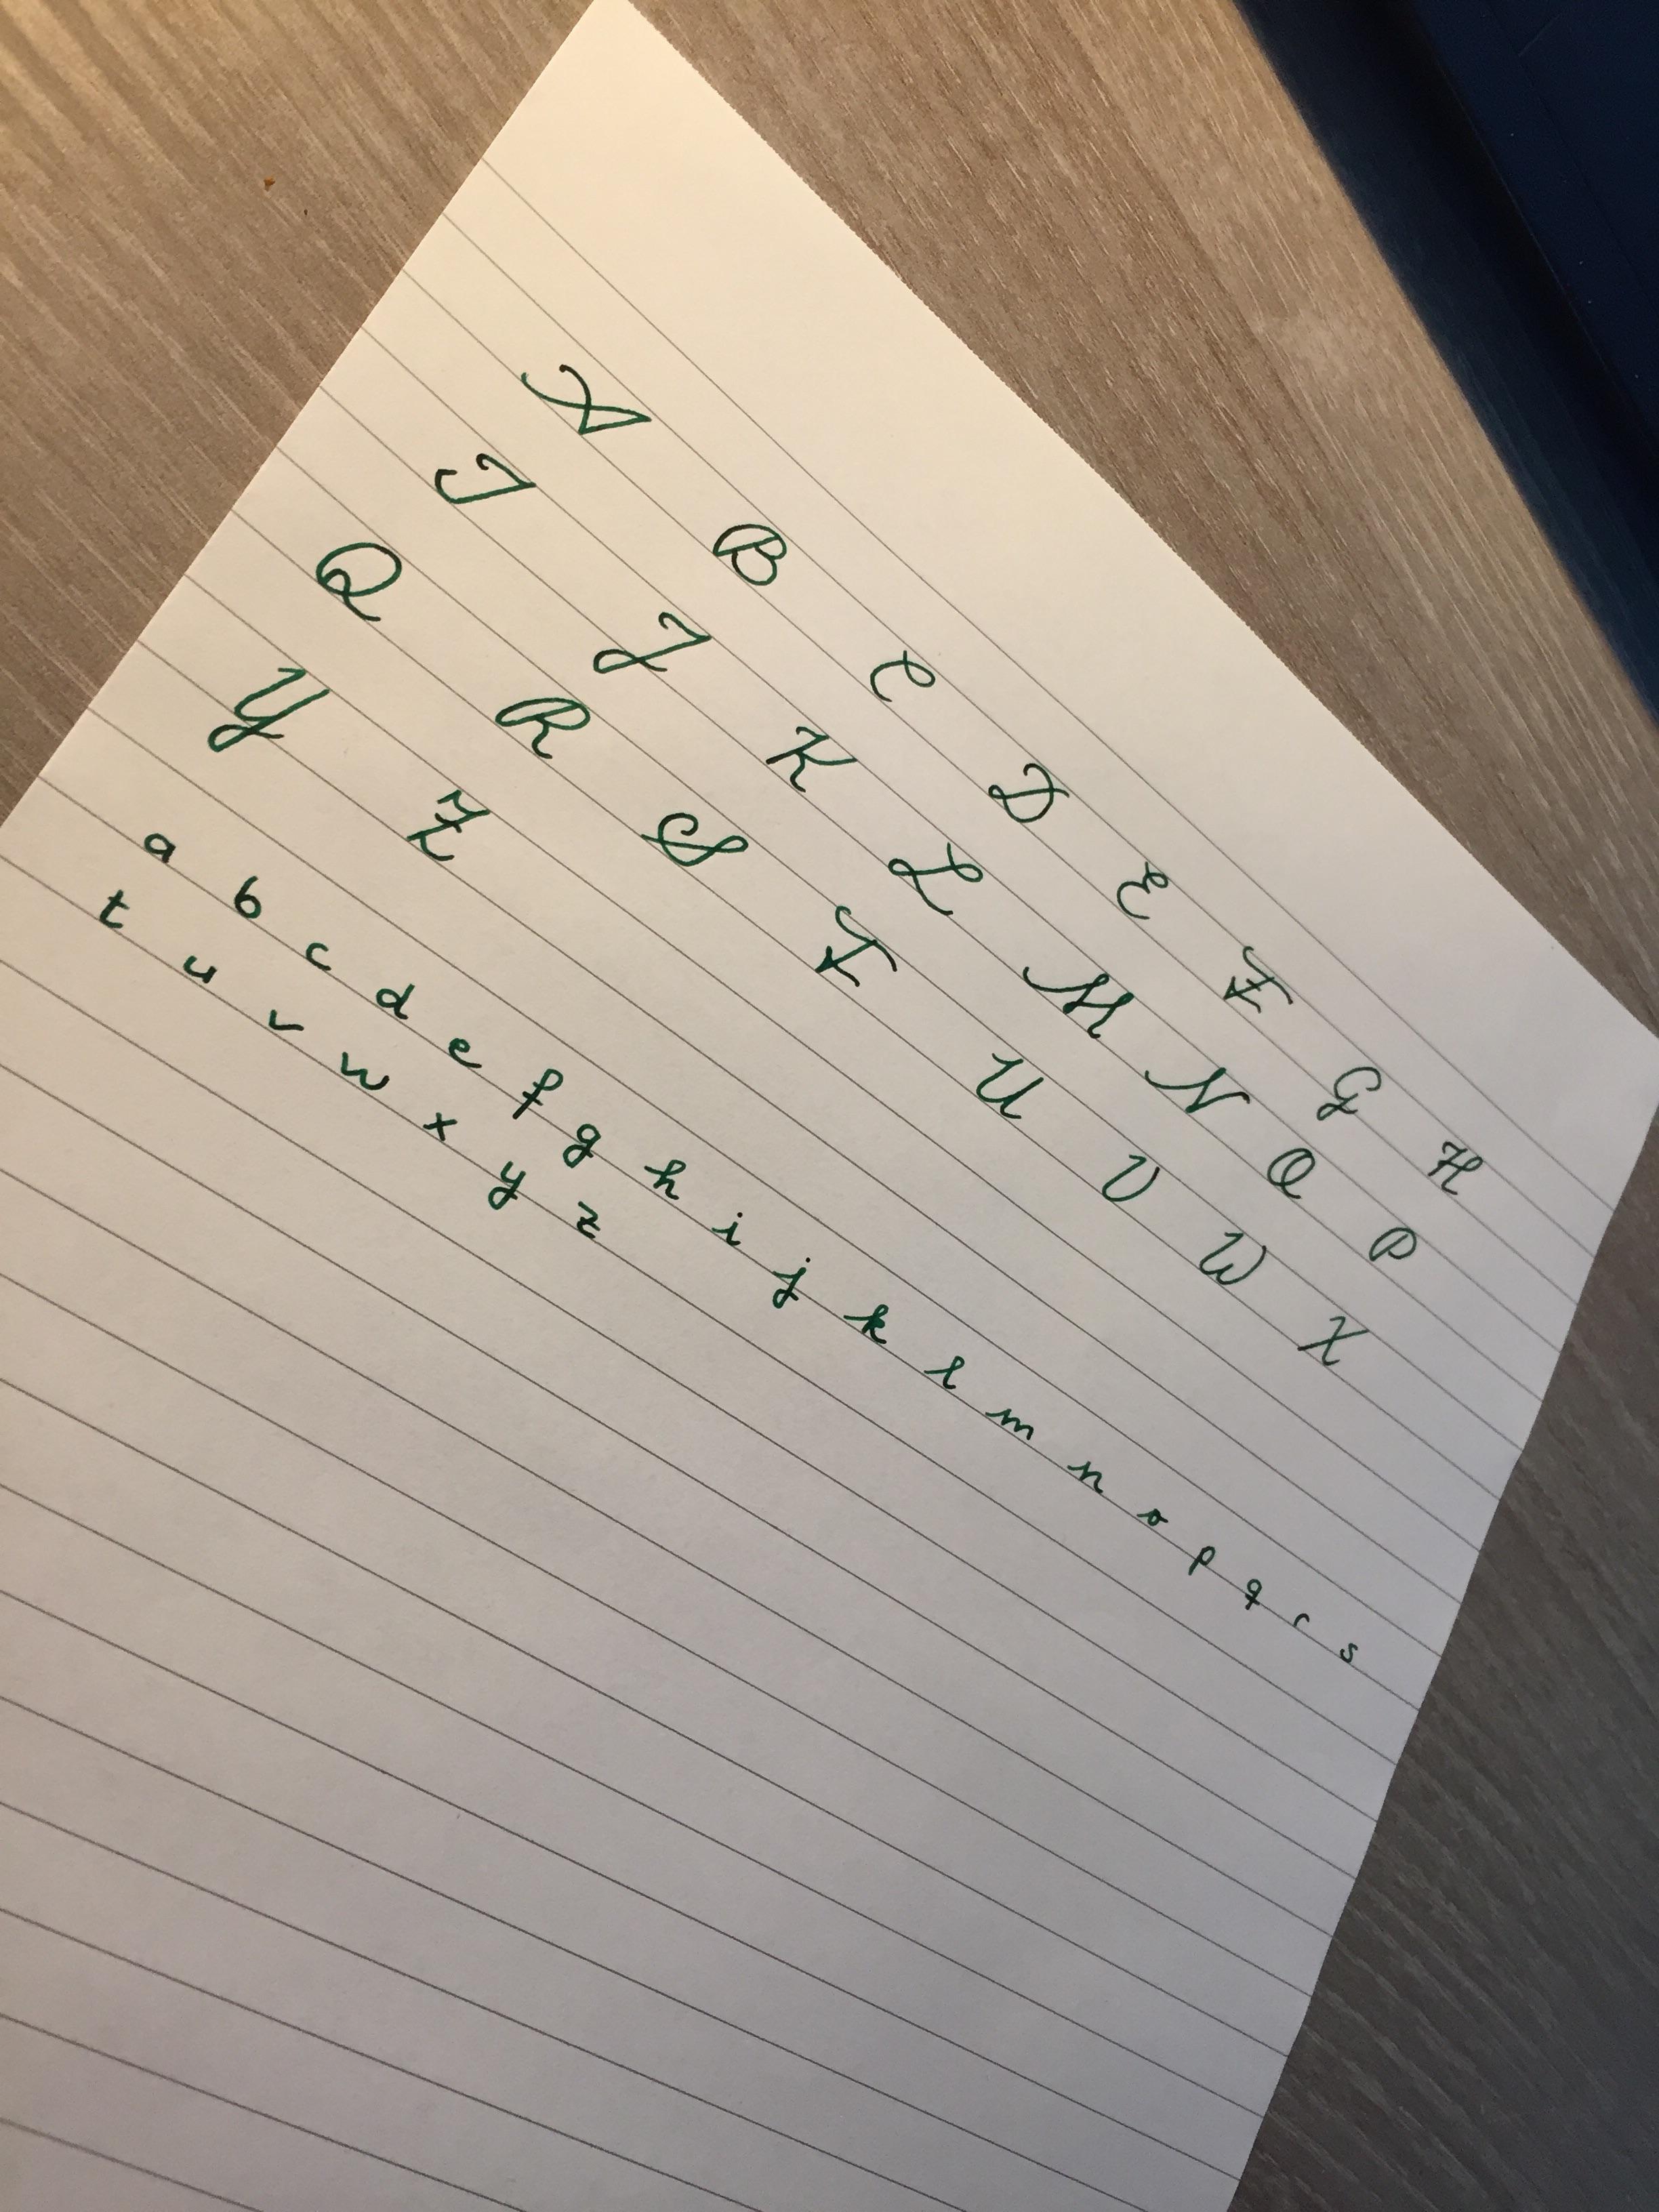 A B C D E F G H
I J K L M N O P
Q R S T U V W X
Y Z
a b c d e f g h i j k l m n o p q r s
t u v w x y z